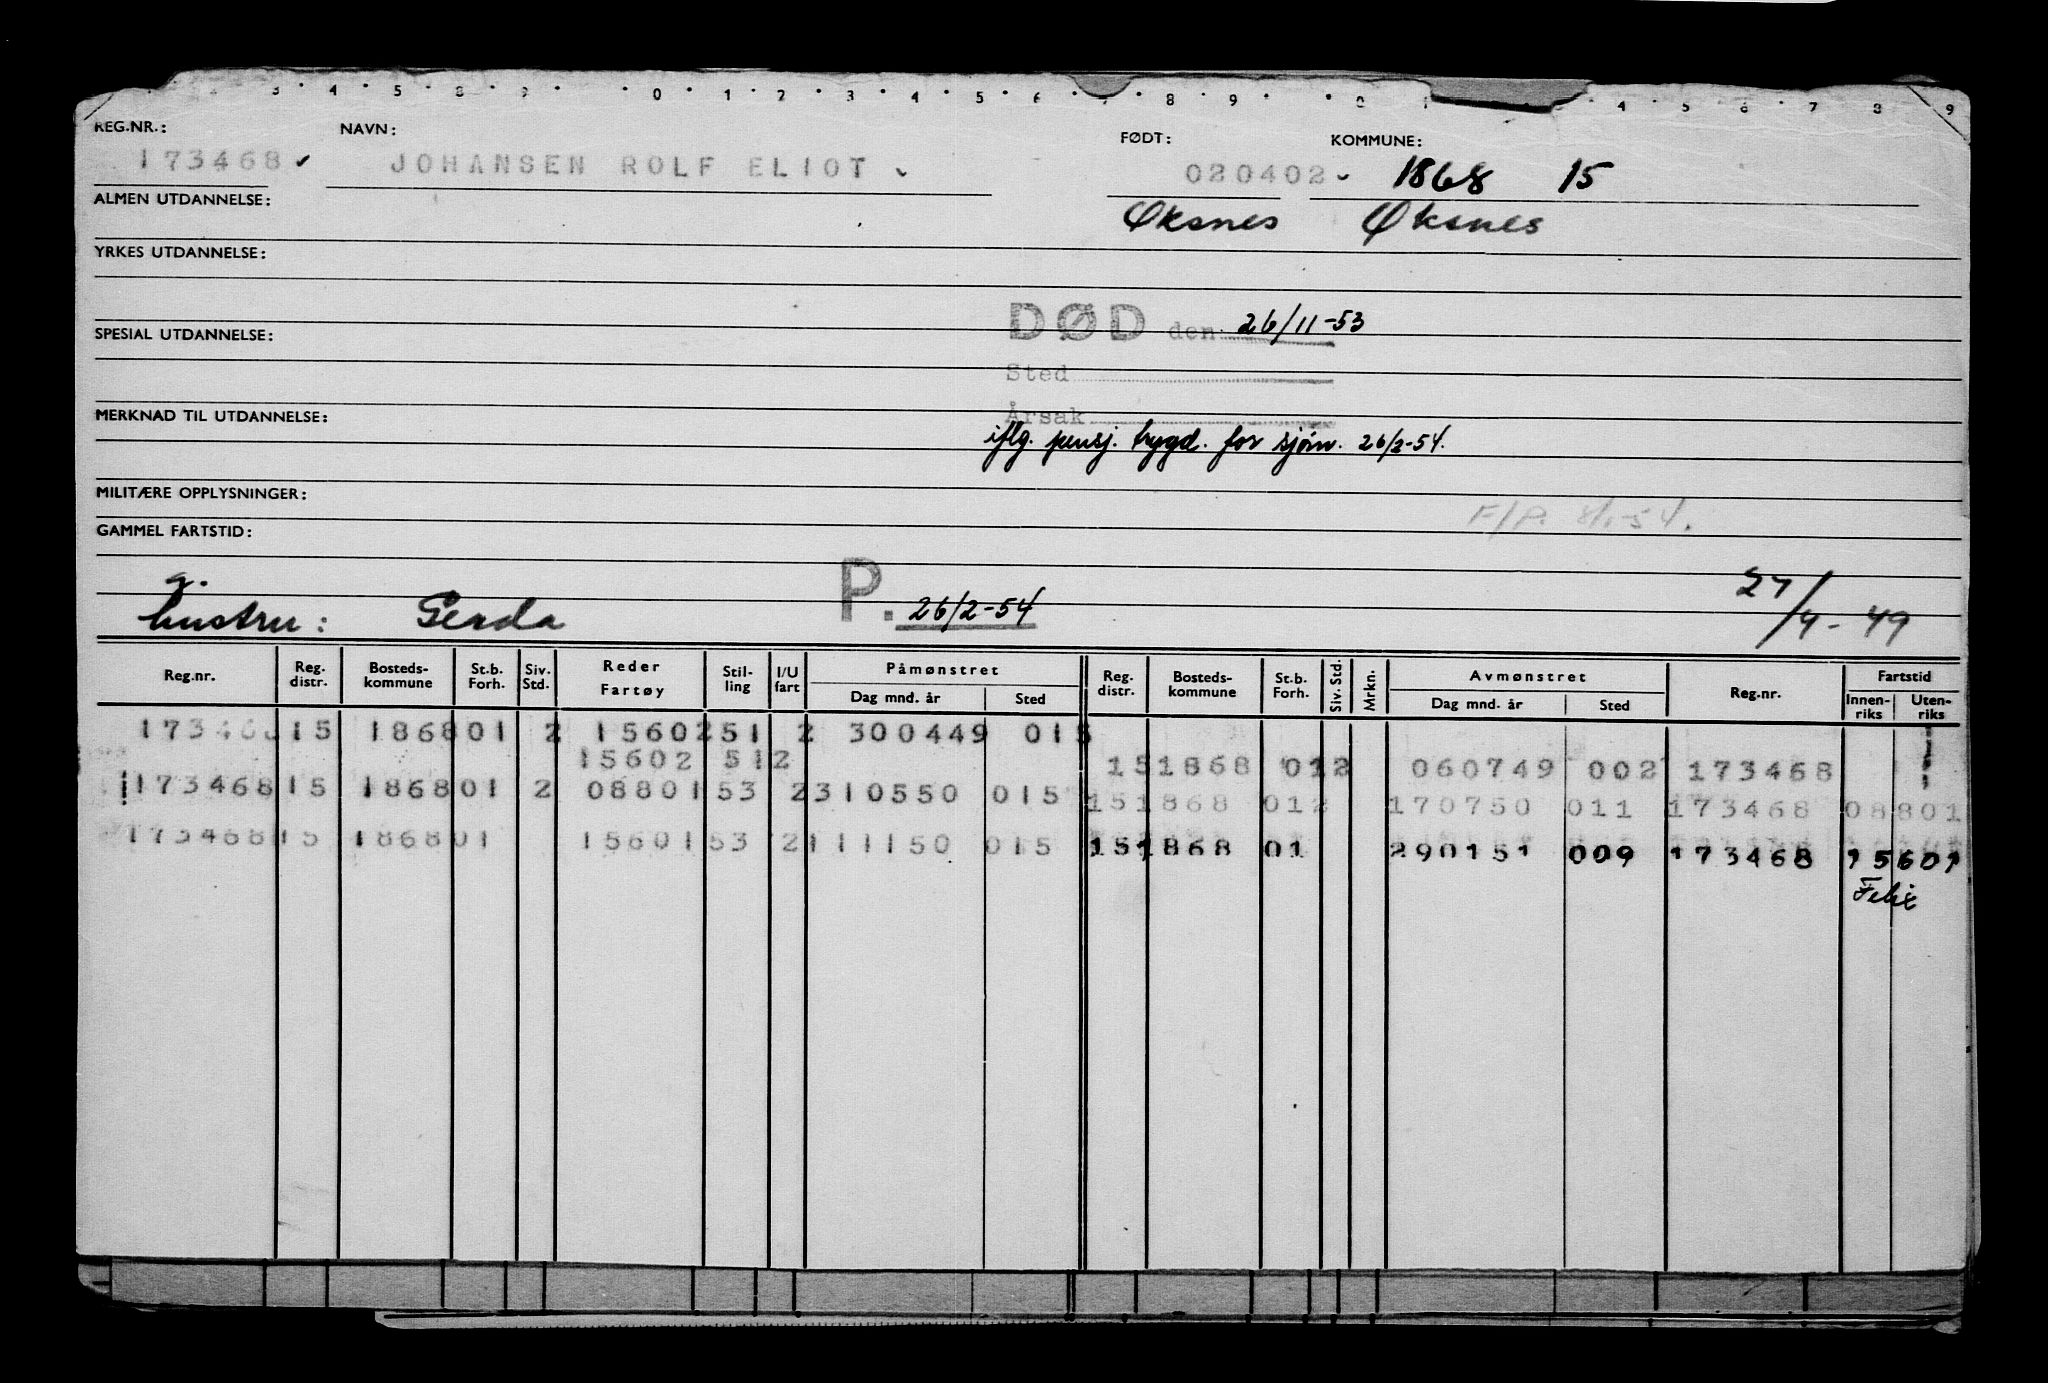 3 · 4 · 5 · 8 · 9 · · 0 · 1 · 2 · 3 · 4 · 5 · 6 · 7 · 8 · 9 · · 0 · 1 3 · 4 · 5 · 6 · 7 · 8 · 9
REG.NR.: NAVN: FØDT: KOMMUNE:
173468 JOHANSEN ROLF ELIOT 020402 1868 15
ALMEN UTDANNELSE: Øksnes Øksnes
YRKES UTDANNELSE:
SPESIAL UTDANNELSE: DØD den 26/11-53
Sted
MERKNAD TIL UTDANNELSE: Årsak
iflg. pensj. trygd. for sjøm. 26/2-54.
MILITÆRE OPPLYSNINGER:
F/P. 8/1-54.
GAMMEL FARTSTID:
g.
hustru: Gerda P. 26/2-54 27/4-49
Reg.nr. Reg. distr. Bosteds-kommune St.b. Forh. Siv. Std. Reder Fartøy Stil-ling I/U fart Påmønstret Dag mnd. år Sted Reg. distr. Bosteds-kommune St.b. Forh. Siv. Std. Mrkn. Avmønstret Dag mnd. år Sted Reg.nr. Fartstid Innen-riks Uten-riks
173468 15 1868 01 2 15602 51 2 300449 015
15602 51 2 15 1868 01 2 060749 002 173468
173468 15 1868 01 2 08801 53 2 310550 015 15 1868 01 2 170750 011 173468 08801
173468 15 1868 01 15601 53 2 111150 015 15 1868 01 290151 009 173468 15601
Felix